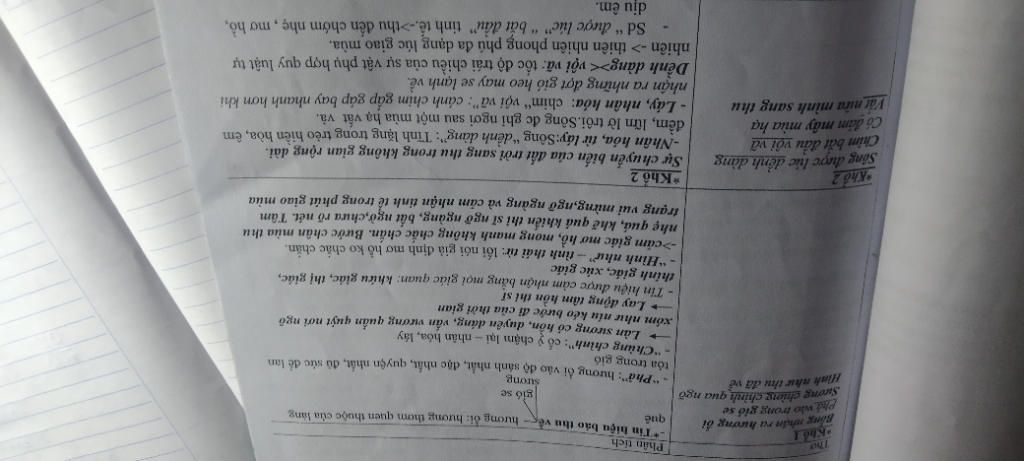 Thơ
Phân tích
*Khổ 1
Bỗng nhận ra hương ổi
Phả vào trong gió se
Sương chùng chình qua ngõ
Hình như thu đã về
-*Tín hiệu báo thu về
hương ổi: hương thơm quen thuộc của làng
quê
gió se
sương
- “Phả”: hương ổi vào độ sánh nhất, đặc nhất, quyện nhất, đủ sức để lan
tỏa trong gió
- “Chùng chình”: cố ý chậm lại – nhân hóa, láy
→ Làn sương có hồn, duyên dáng, vấn vương quấn quýt nơi ngõ
xóm như níu kéo bước đi của thời gian
→ Lay động tâm hồn thi sĩ
- Tín hiệu được cảm nhận bằng mọi giác quan: khứu giác, thị giác,
thính giác, xúc giác
- “Hình như” – tình thái từ: lối nói giả định mơ hồ ko chắc chắn.
->cảm giác mơ hồ, mong manh không chắc chắn. Bước chân mùa thu
nhẹ quá, khẽ quá khiến thi sĩ ngỡ ngàng, bất ngờ,chưa rõ nét. Tâm
trạng vui mừng,ngỡ ngàng và cảm nhận tinh tế trong phút giao mùa
*Khổ 2
Sông được lúc dềnh dàng
Chim bắt đầu vội vã
Có đám mây mùa hạ
Vắt nửa mình sang thu
*Khổ 2
Sự chuyển biến của đất trời sang thu trong không gian rộng dài.
-Nhân hóa, từ láy:Sông “dềnh dàng”: Tĩnh lặng trong trẻo hiền hòa, êm
đềm, lững lờ trôi.Sông đc ghỉ ngơi sau một mùa hạ vất vả.
- Láy, nhân hóa: chim“ vội vã”: cánh chim gấp gáp bay nhanh hơn khi
nhận ra những đợt gió heo may se lạnh về.
Dềnh dàng>< vội vã: tốc độ trái chiều của sự vật phù hợp quy luật tự
nhiên -> thiên nhiên phong phú đa dạng lúc giao mùa.
- Sd “ được lúc” “ bắt đầu” tinh tế.->thu đến chớm nhẹ , mơ hồ,
dịu êm.